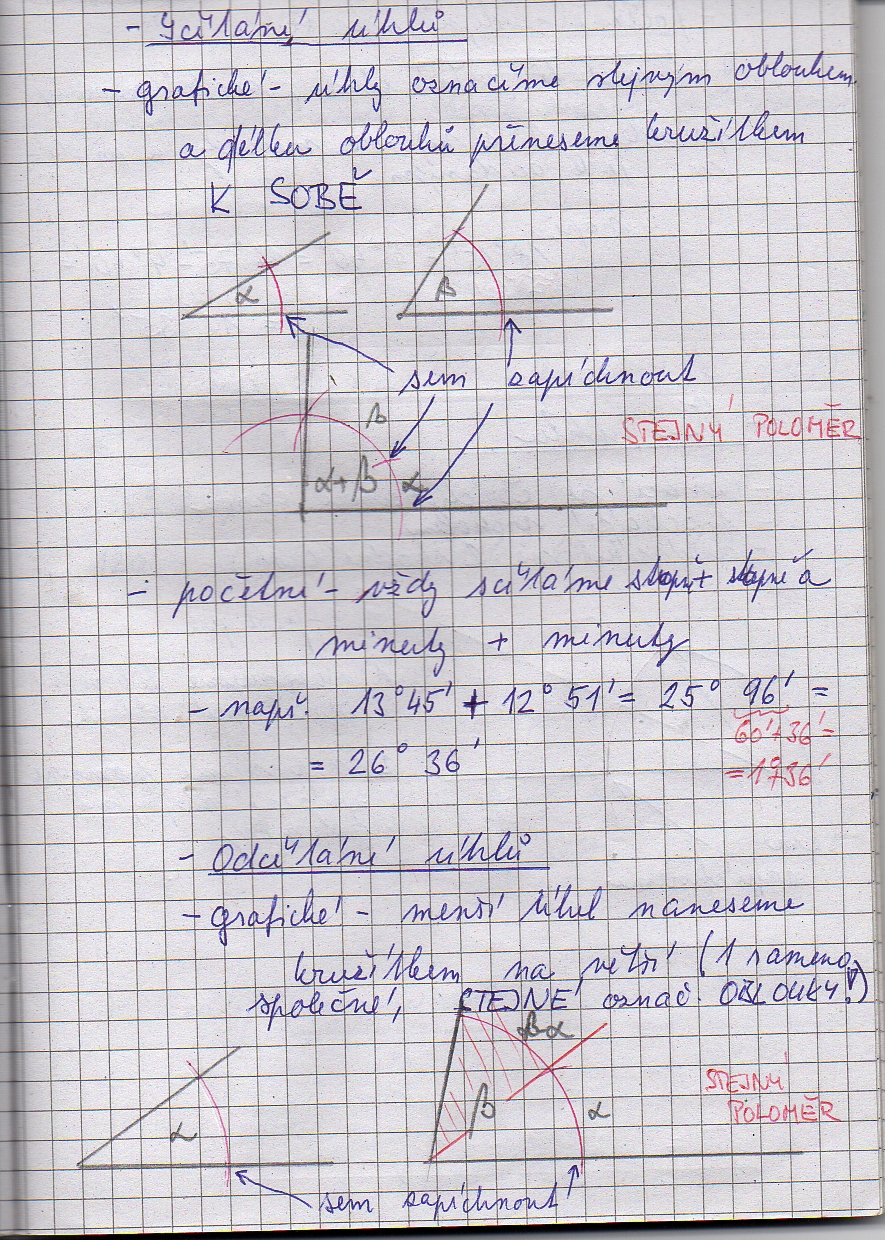 - Sčítání úhlů
- grafické - úhly označíme stejným obloukem
a délku oblouků přineseme kružítkem
K SOBĚ
α β
sem zapíchnout
β
STEJNÝ POLOMĚR
α+β α
- početní - vždy sčítáme stupně + stupně a
minuty + minuty
- např. 13° 45' + 12° 51' = 25° 96' =
60'+36'=
= 26° 36'
=1°+36'
- Odčítání úhlů
- grafické - menší úhel naneseme
kružítkem na větší (1 rameno
společné, STEJNĚ označ. OBLOUKY!)
β-α
α β α
STEJNÝ
POLOMĚR
sem zapíchnout